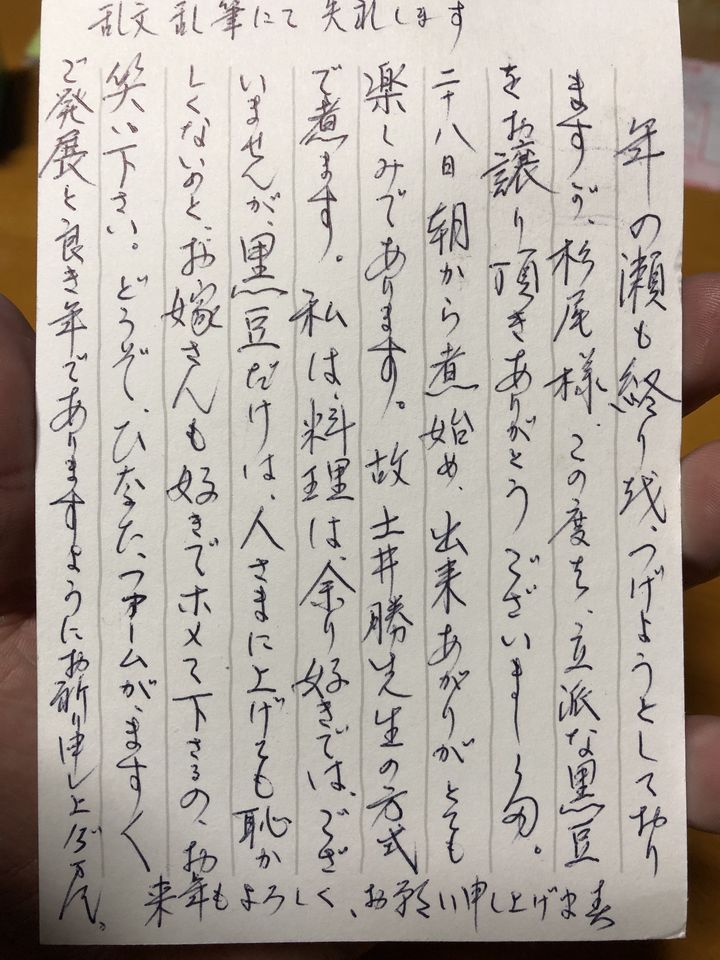 乱文乱筆にて失礼します
年の瀬も終りを、つげようとしており
ますが、杉尾様、この度は、立派な黒豆
をお譲り頂きありがとうございました。
二十八日朝から煮始め、出来あがりがとても
楽しみであります。故土井勝先生の方式
で煮ます。私は、料理は、余り好きでは、ござ
いませんが、黒豆だけは、人さまに上げても恥か
しくないのと、お嫁さんも好きでホメて下さるの、お
笑い下さい。どうぞ、ひなた、ファームが、ますく
ご発展と良き年でありますようにお祈り申し上げます。
来年もよろしく、お願い申し上げます